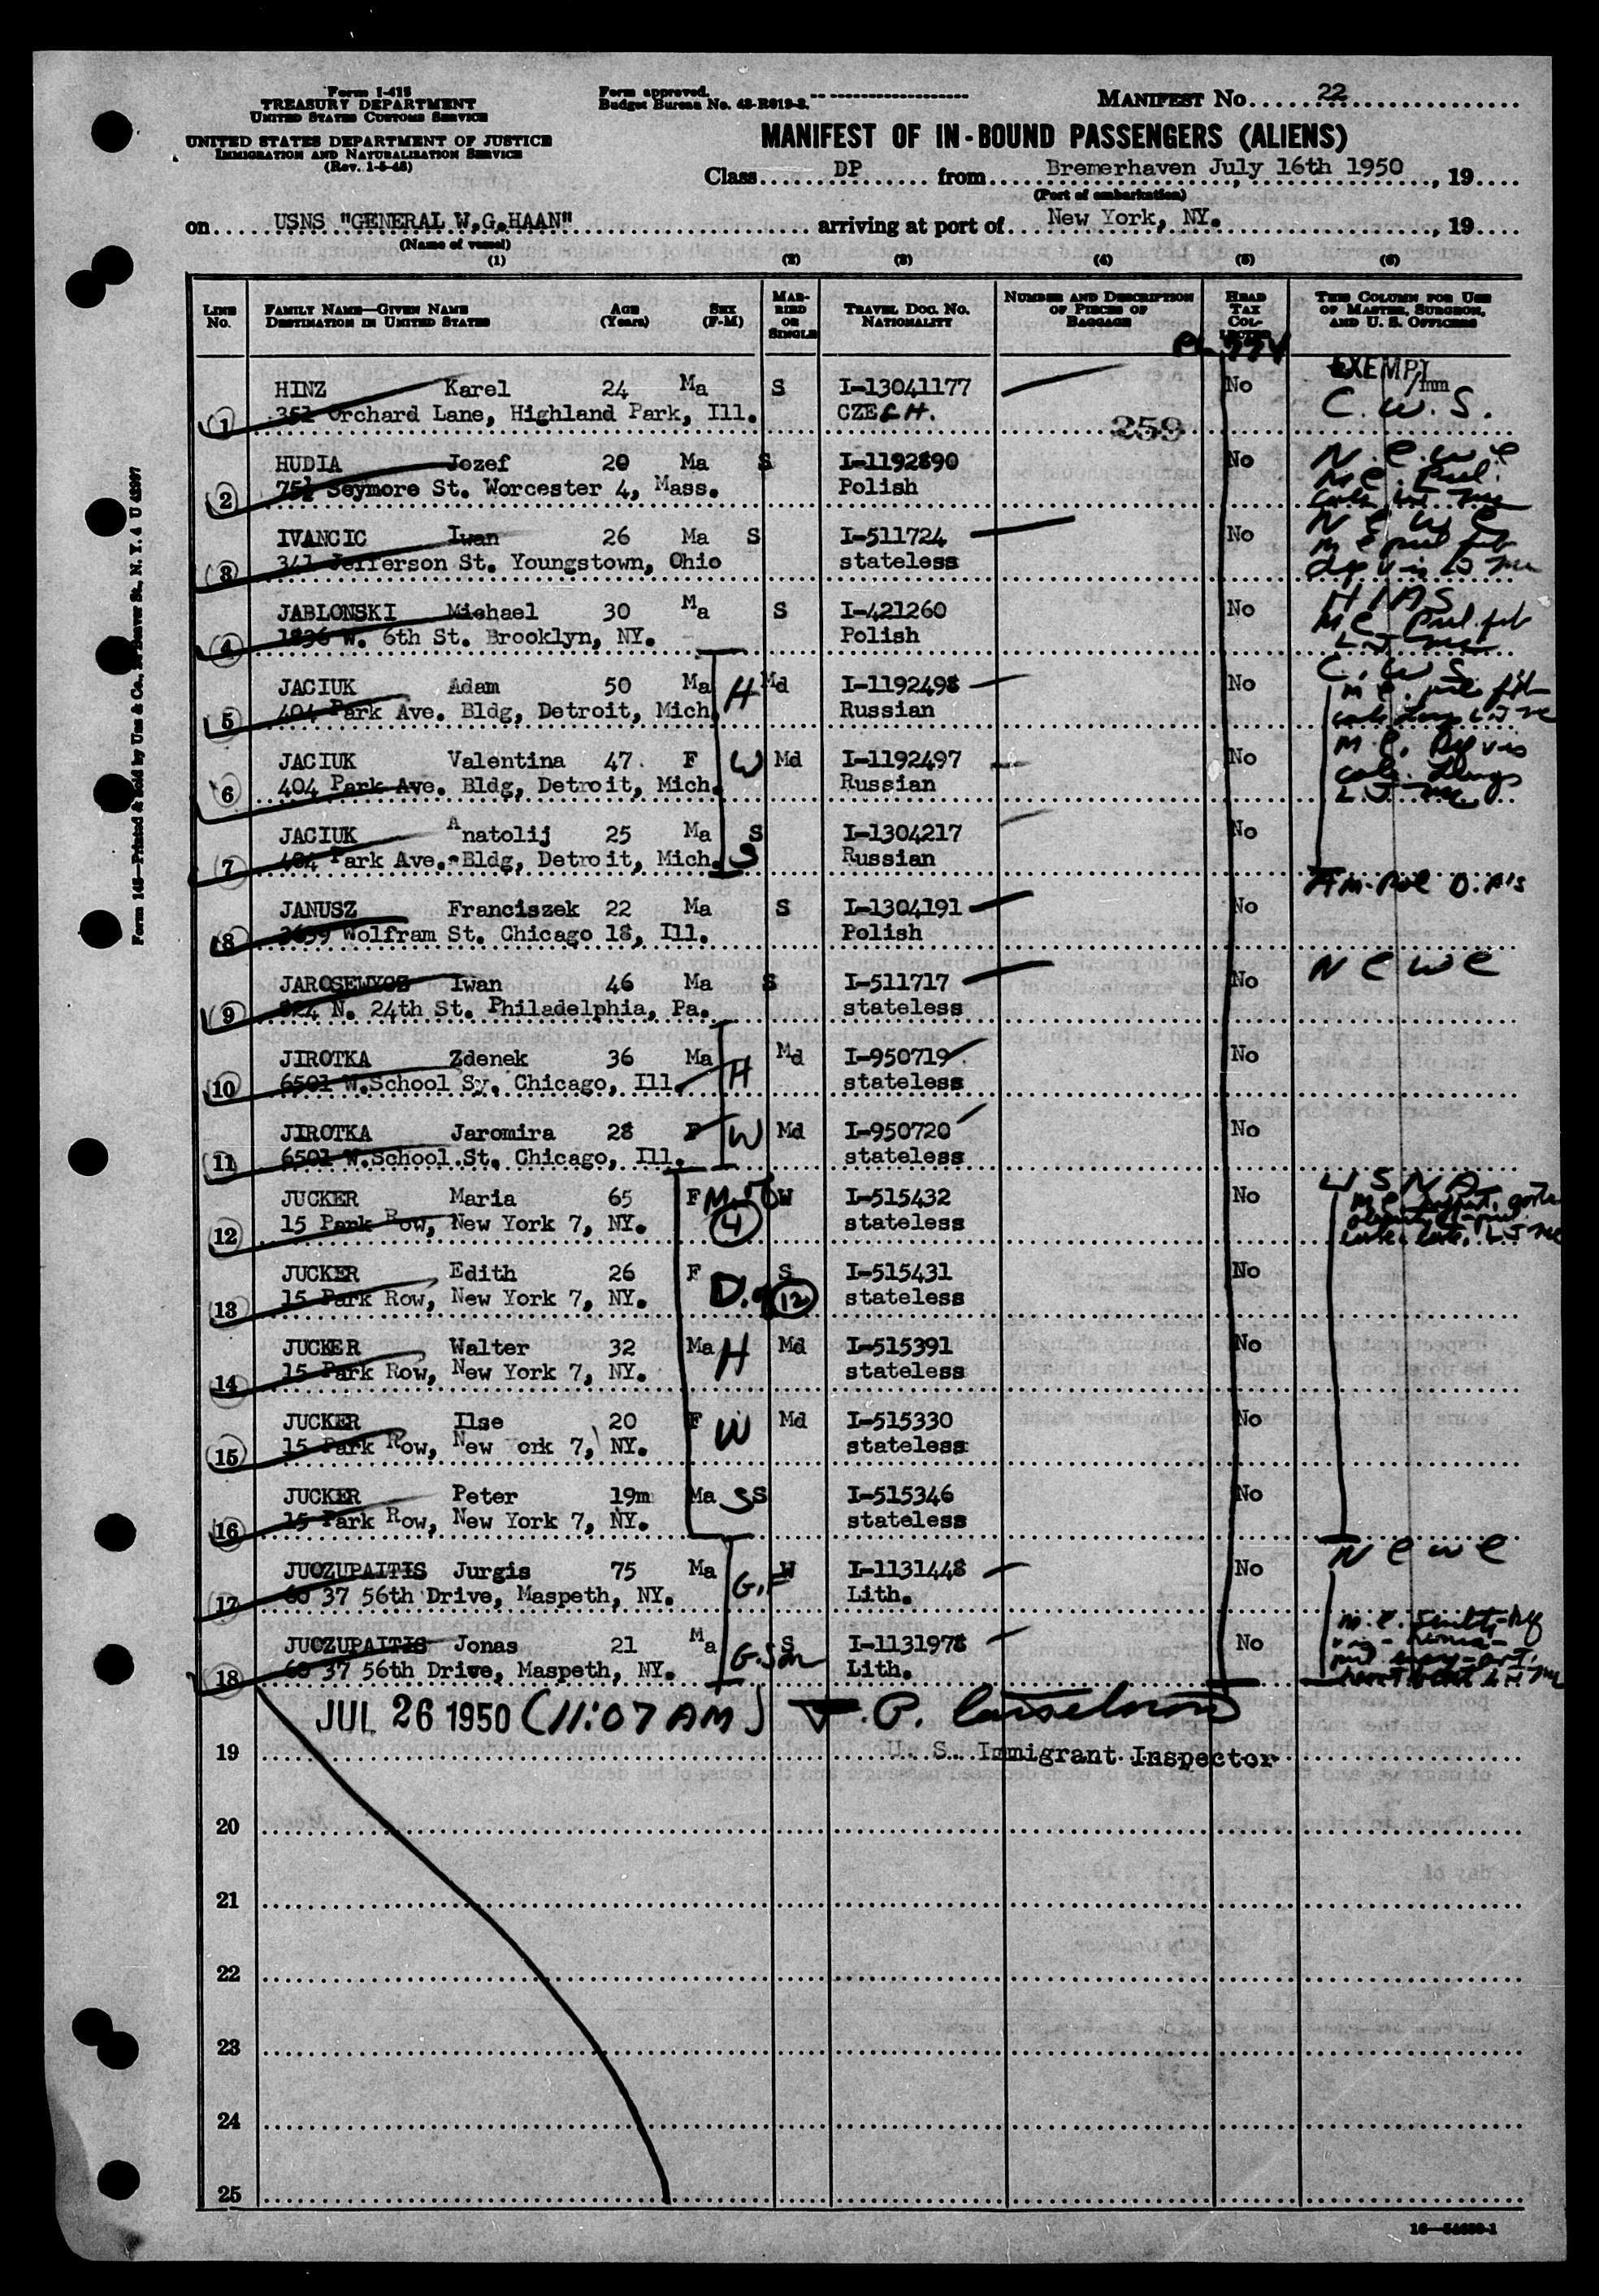 Form I-415
TREASURY DEPARTMENT
UNITED STATES CUSTOMS SERVICE
UNITED STATES DEPARTMENT OF JUSTICE
IMMIGRATION AND NATURALIZATION SERVICE
(Rev. 1-5-48)
Form approved.
Budget Bureau No. 43-R019-3.
MANIFEST No. 22
MANIFEST OF IN-BOUND PASSENGERS (ALIENS)
Class DP from Bremerhaven July 16th 1950, 19
(Port of embarkation)
on USNS "GENERAL W.G.HAAN" arriving at port of New York, NY., 19
(Name of vessel)
(1) (2) (3) (4) (5) (6)
LINE No. FAMILY NAME—GIVEN NAME DESTINATION IN UNITED STATES AGE (Years) SEX (F-M) MARRIED OR SINGLE TRAVEL DOC. NO. NATIONALITY NUMBER AND DESCRIPTION OF PIECES OF BAGGAGE HEAD TAX COLLECTED THIS COLUMN FOR USE OF MASTER, SURGEON, AND U. S. OFFICERS
EXEMPT
HINZ Karel 24 Ma S I-13041177 No
1 351 Orchard Lane, Highland Park, Ill. CZECH. 259 C.W.S.
HUDIA Jozef 20 Ma S I-1192890 No N.C.W.C
2 751 Seymore St. Worcester 4, Mass. Polish
IVANCIC Iwan 26 Ma S I-511724 No N C W C
3 341 Jefferson St. Youngstown, Ohio stateless
JABLONSKI Michael 30 Ma S I-421260 No HIAS
4 1836 W. 6th St. Brooklyn, NY. Polish
JACIUK Adam 50 Ma H Md I-1192498 No C.W.S
5 404 Park Ave. Bldg, Detroit, Mich. Russian
JACIUK Valentina 47. F W Md I-1192497 No
6 404 Park Ave. Bldg, Detroit, Mich. Russian
JACIUK Anatolij 25 Ma S I-1304217 No
7 404 Park Ave. Bldg, Detroit, Mich. S Russian
Am-Pol D.P's
JANUSZ Franciszek 22 Ma S I-1304191 No
8 3659 Wolfram St. Chicago 18, Ill. Polish
JAROSEWYCZ Iwan 46 Ma S I-511717 No N C W C
9 824 N. 24th St. Philadelphia, Pa. stateless
JIROTKA Zdenek 36 Ma H Md I-950719 No
10 6501 W.School Sy. Chicago, Ill. stateless
JIROTKA Jaromira 28 F W Md I-950720 No
11 6501 W.School.St. Chicago, Ill. stateless
JUCKER Maria 65 F W I-515432 No USNA
12 15 Park Row, New York 7, NY. 4 stateless
JUCKER Edith 26 F S I-515431 No
13 15 Park Row, New York 7, NY. 12 stateless
JUCKER Walter 32 Ma H Md I-515391 No
14 15 Park Row, New York 7, NY. stateless
JUCKER Ilse 20 F W Md I-515330 No
15 15 Park Row, New ork 7, NY. stateless
JUCKER Peter 19m Ma S S I-515346 No
16 15 Park Row, New York 7, NY. stateless
JUOZUPAITIS Jurgis 75 Ma G.F W I-1131448 No N C W C
17 60 37 56th Drive, Maspeth, NY. Lith.
JUOZUPAITIS Jonas 21 Ma G.Son S I-1131978 No
18 60 37 56th Drive, Maspeth, NY. Lith.
JUL 26 1950 (11:07 AM)
19 U. S. Immigrant Inspector
20
21
22
23
24
25
16—54690-1